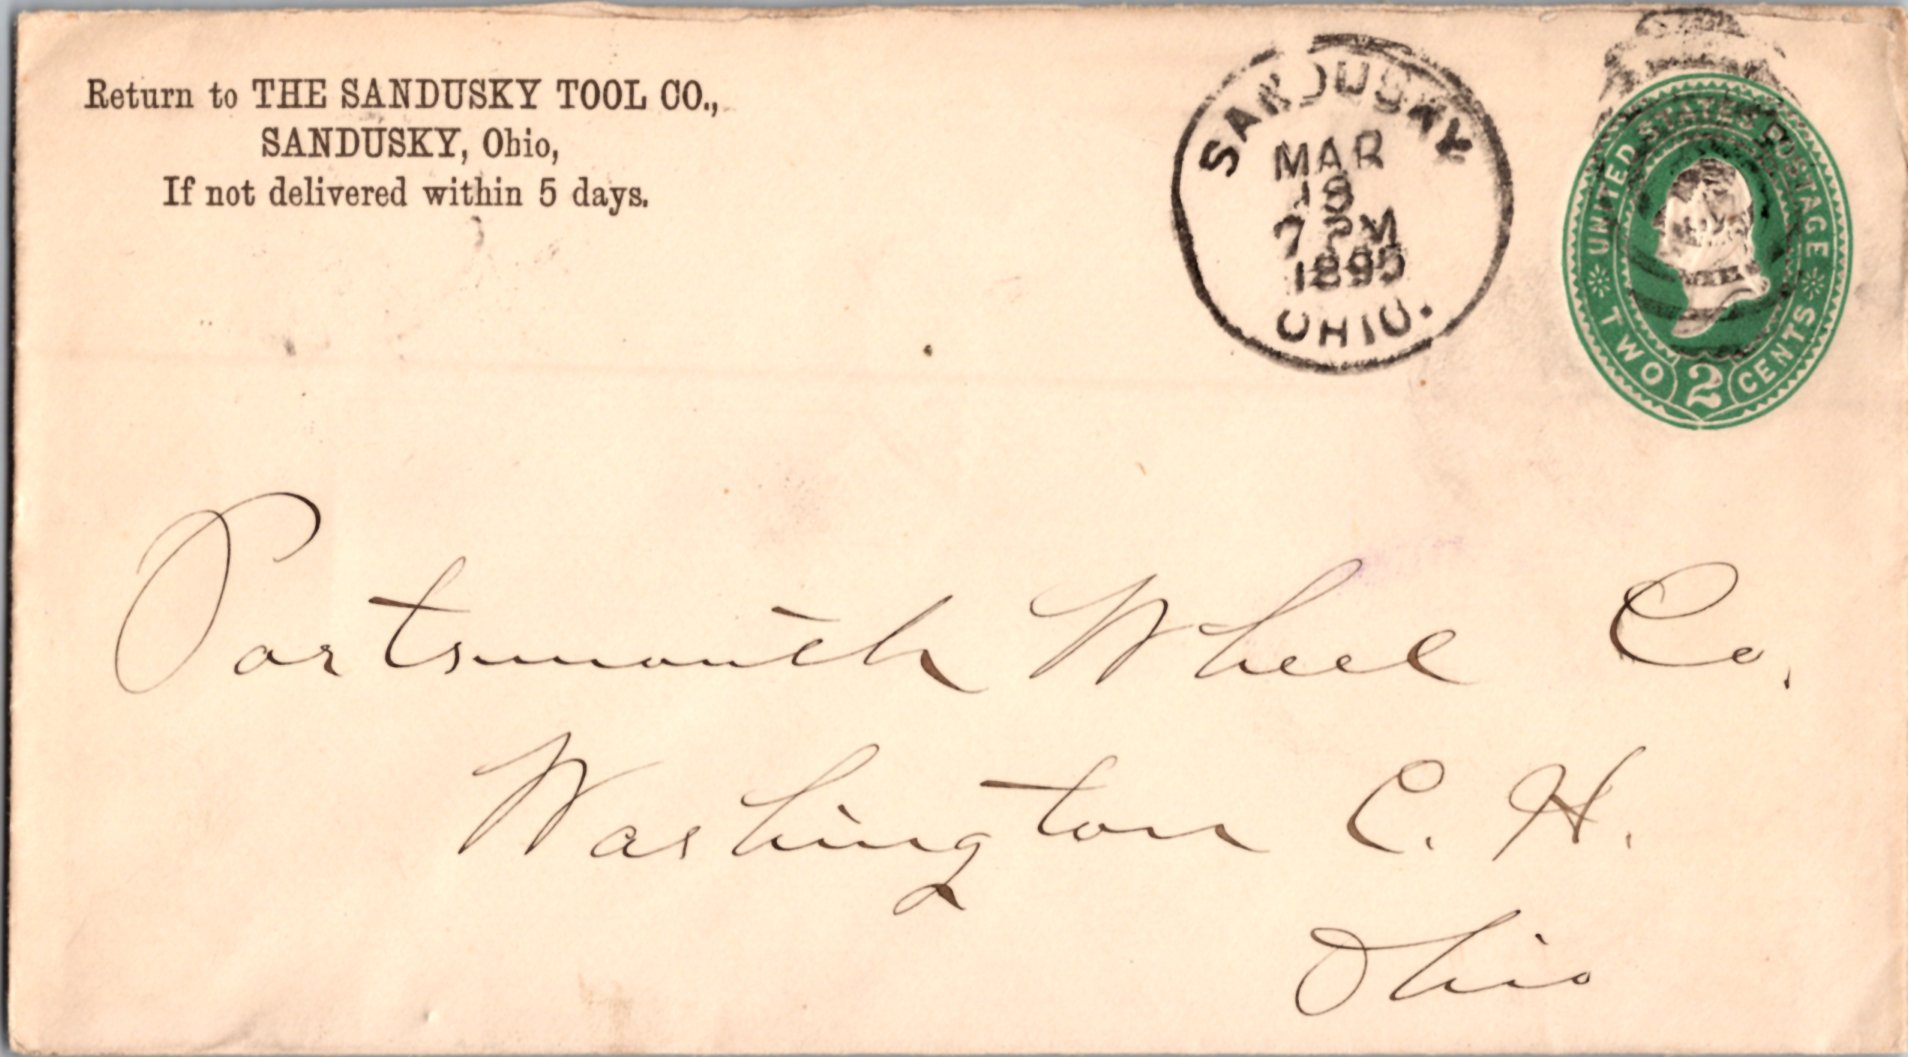 Return to THE SANDUSKY TOOL CO.,
SANDUSKY, Ohio,
If not delivered within 5 days.
SANDUSKY
MAR
18
7 PM
1895
OHIO.
UNITED STATES POSTAGE
TWO 2 CENTS
Portsmouth Wheel Co.
Washington C. H.
Ohio